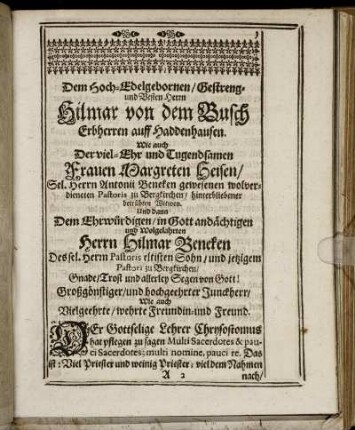 3
Dem Hoch-Edelgebornen/ Gestreng-
und Vesten Herrn
Hilmar von dem Busch
Erbherren auff Haddenhausen.
Wie auch
Der viel-Ehr und Tugendsamen
Frauen Margreten Heisen/
Sel. Herrn Antonii Beneken gewesenen wolver-
dieneten Pastoris zu Bergkirchen/ hinterbliebener
betrübten Witwen.
Und dann
Dem Ehrwürdigen/ in Gott andächtigen
und Wolgelahrten
Herrn Hilmar Beneken
Des sel. Herrn Pastoris eltisten Sohn/ und jetzigem
Pastori zu Bergkirchen/
Gnade/ Trost und allerley Segen von Gott!
Großgönstiger/ und hochgeehrter Junckherr/
Wie auch
Vielgeehrte/ wehrte Freundin und Freund.
DEr Gottselige Lehrer Chrysostomus
hat pflegen zu sagen Multi Sacerdotes & pau-
ci Sacerdotes; multi nomine, pauci re. Das
ist: Viel Priester und weinig Priester; viel dem Nahmen
A 2 nach/